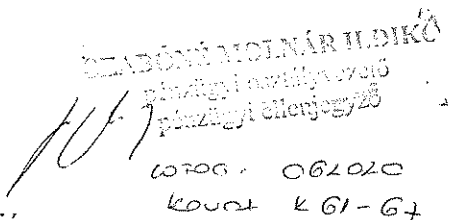 SZABÓNÉ MOLNÁR ILDIKÓ
pénzügyi osztályvezető
pénzügyi ellenjegyző
062020
K 61-67